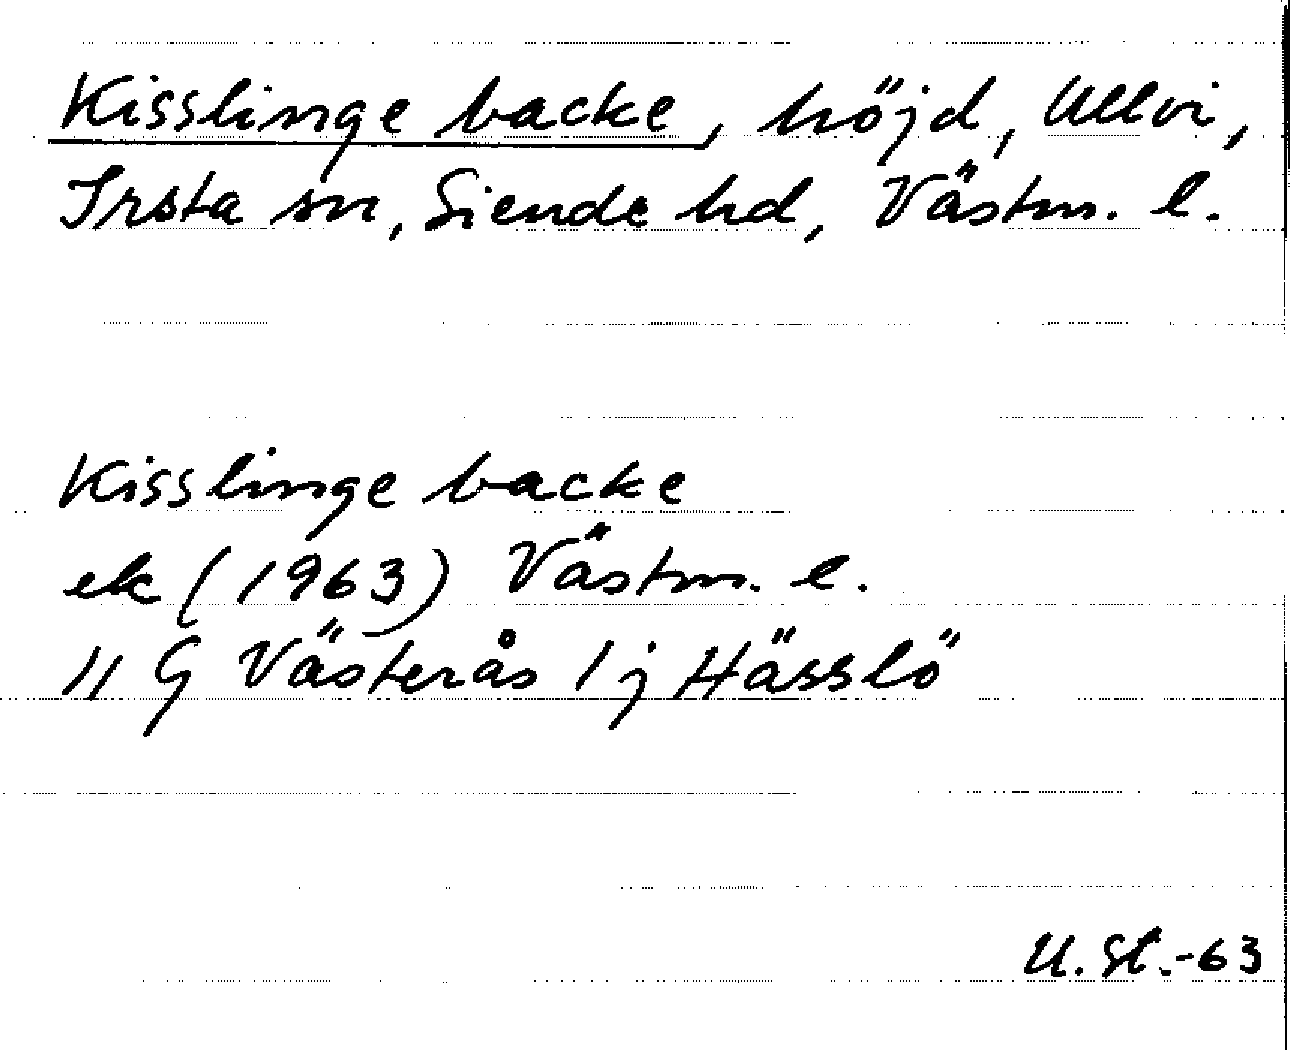 Kisslinge backe, höjd, Ullvi,
Irsta sn, Siende hd, Västm. l.
Kisslinge backe
ek (1963) Västm. l.
11 G Västerås 1 j Hässlö
U. St.-63